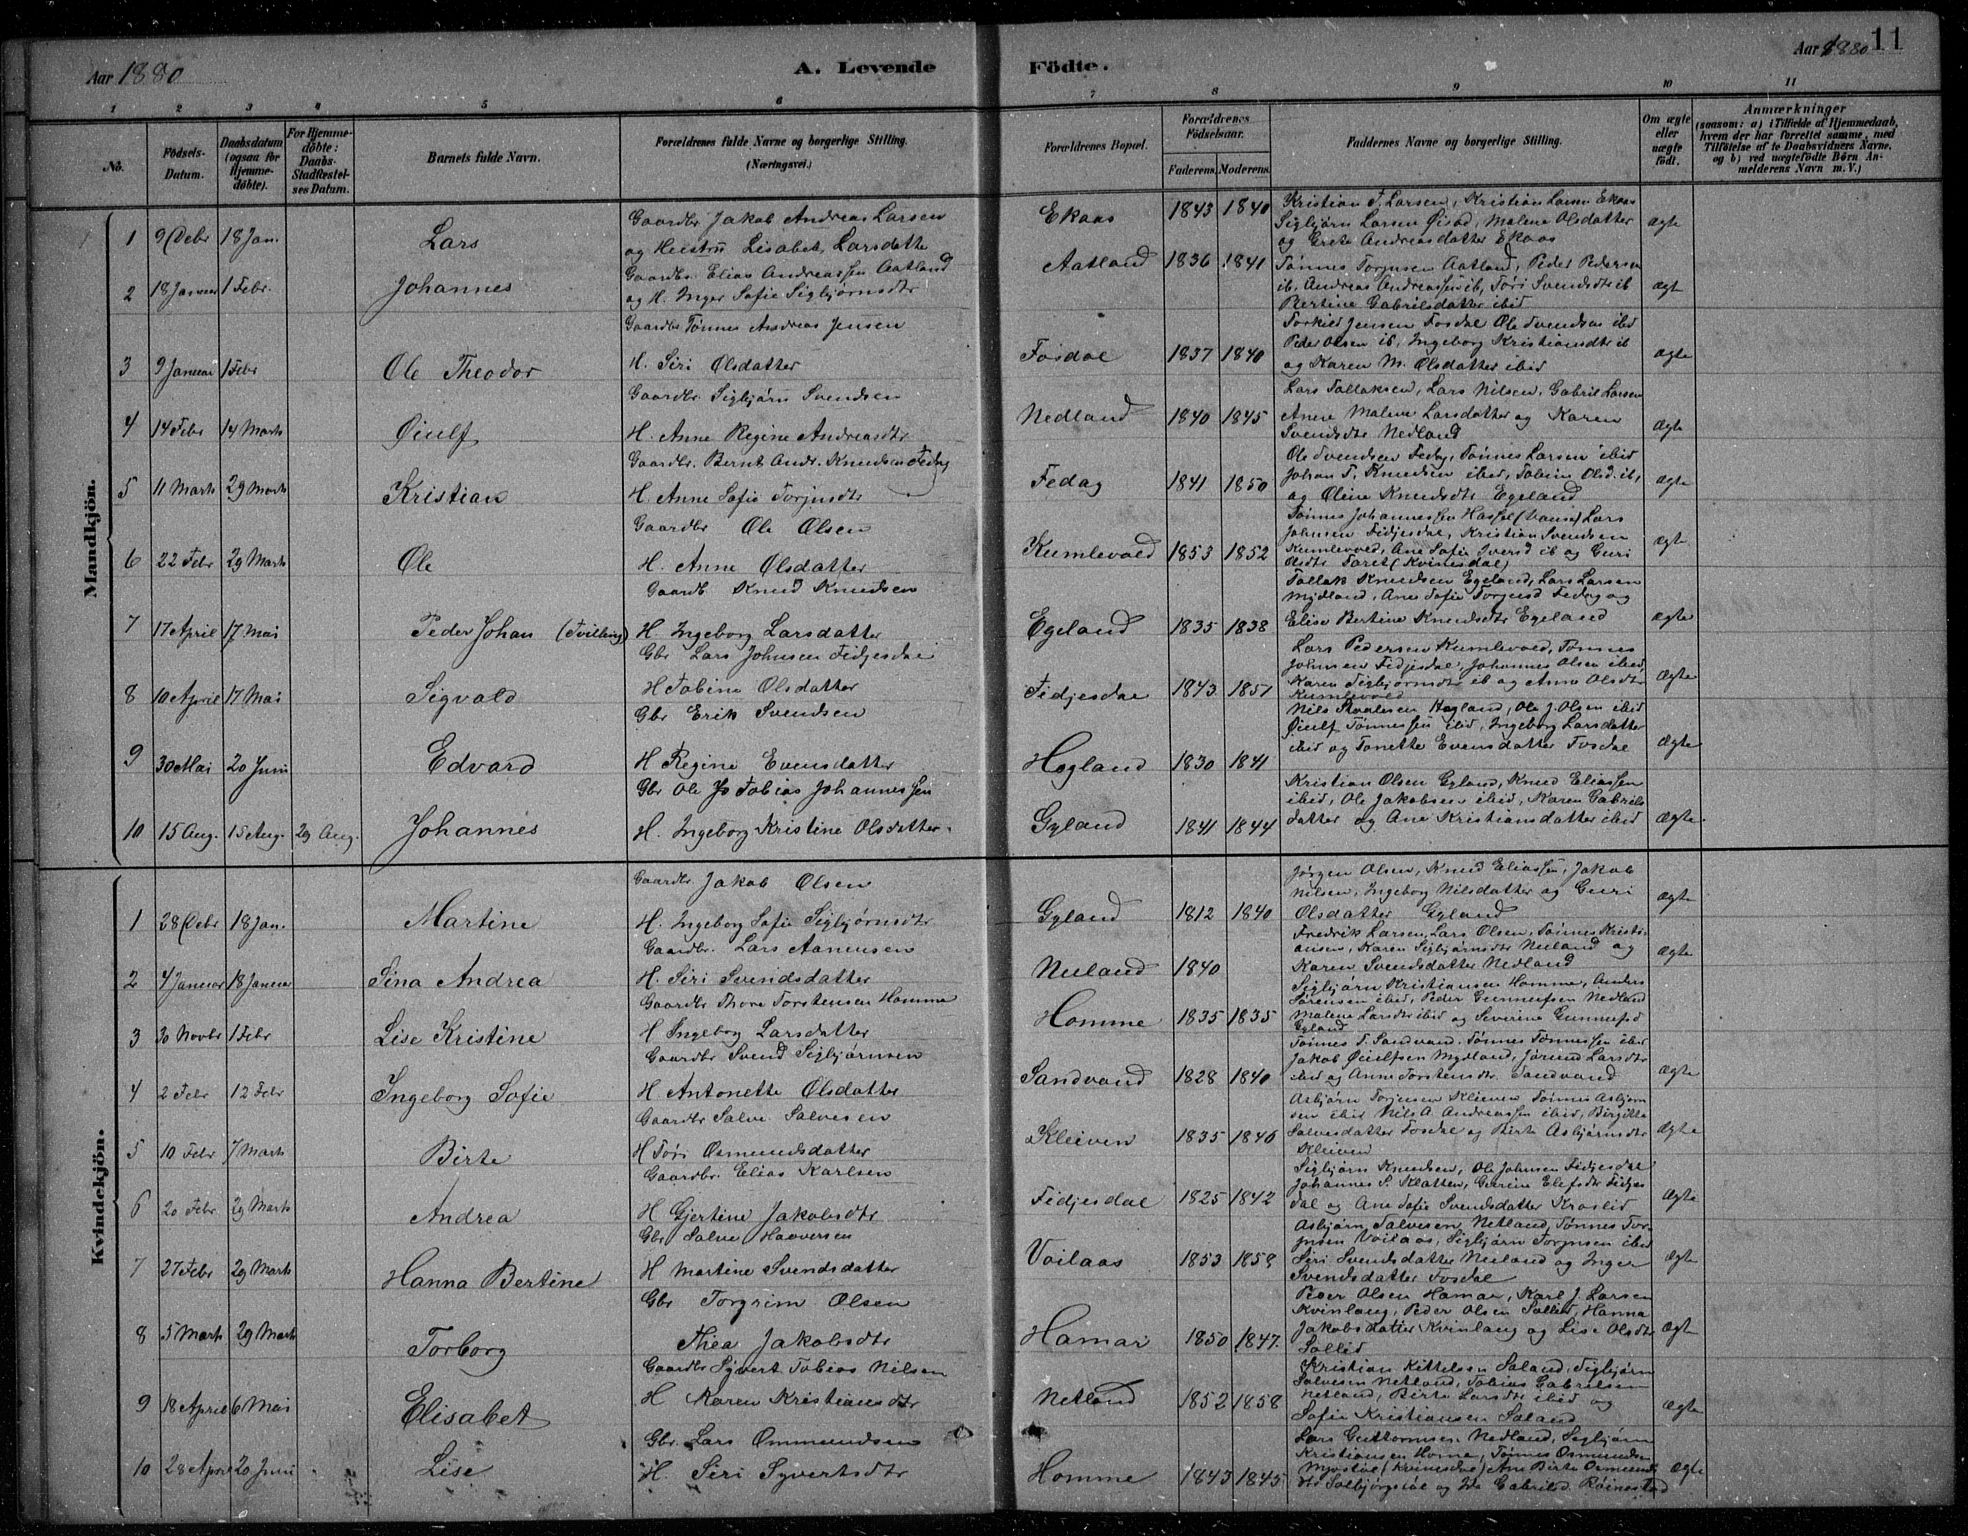 Aar 1880
A. Levende
Födte.
Aar 1880 11
1 2 3 4 5 6 7 8 9 10 11
No.
Födsels-Datum.
Daabsdatum (ogsaa for Hjemme-døbte).
For Hjemme-døbte: Daabs-Stadfæstel-ses Datum.
Barnets fulde Navn.
Forældrenes fulde Navne og borgerlige Stilling. (Næringsvei.)
Forældrenes Bopæl.
Forældrenes Födselsaar.
Faderens. Moderens.
Faddernes Navne og borgerlige Stilling.
Om ægte eller uægte födt.
Anmærkninger
(saasom: a) i Tilfælde af Hjemmedaab, hvem der har forrettet samme, med Tilföielse af to Daabsvidners Navne, og b) ved uægtefödte Börn An-melderens Navn m. V.)
Mandkjön.
1 9 Debr 18 Jan. Lars
Gaardbr Jakob Andreas Larsen
og Hustru Lisabet Larsdatte
Ekaas 1843 1840
Kristian T. Larsen, Kristian Larsen Ekaas
Sigbjørn Larsen Øibd, Malene Olsdatter
og Grete Andreasdatter Ekaas
ægte
2 18 Januar 1 Febr. Johannes
Gaardbr. Elias Andreassen Aatland
og H. Inger Sofie Sigbjørnsdtr
Aatland 1836 1841
Tønnes Torjusen Aatland, Peder Pedersen
ib, Andreas Andreassen ib, Tøri Svendsdtr ib
Bertine Gabrielsdatter ibid
ægt
3 9 Januar 1 Febr Ole Theodor
Gaardbr Tønnes Andreas Jensen
H. Siri Olsdatter
Fosdal 1837 1840
Torkild Jensen Fosdal Ole Svendsen ibid
Peder Olsen ib, Ingeborg Kristiansdtr ib
og Karen M. Olsdatter ibid
ægte
4 14 Febr 14 Marts Øiulf
Gaardbr. Sigbjørn Svendsen
H. Anne Regine Andreasdtr
Nedland 1840 1845
Lars Tallaksen, Lars Nilsen, Gabriel Larsen
Anne Malene Larsdatter og Karen
Svendsdtr Nedland
Ægte
5 11 Marts 29 Marts Kristian
Gaardbr. Bernt Andr. Knudsen Fedag
H. Anne Sofie Torjusdtr
Fedag 1841 1850
Ole Svendsen Fedag, Tønnes Larsen ibid
Johan T. Knudsen ibid, Tobine Olsd. ib,
og Oline Knudsdtr Egeland
ægte
6 22 Febr 29 Marts Ole
Gaardbr Ole Olsen
H. Anne Olsdatter
Kumlevold 1853 1852
Tønnes Johannessen Hassel (Vanse) Lars
Johnsen Fidjesdal, Kristian Svendsen
Kumlevold, Ane Sofie Iversd ib og Guri
Olsdtr Faret (Kvinesdal)
ægt
7 17 April 17 Mai Peder Johan (Tvilling)
Gaardb. Knud Knudsen
H Ingeborg Larsdatter
Egeland 1835 1838
Tallak Knudsen Egeland, Lars Larsen
Mydland, Ane Sofie Torjusd Fedag og
Elise Bertine Knudsdtr Egeland
ægte
8 10 April 17 Mai Sigvald
Gbr Lars Johnsen Fidjesdal
H Tobine Olsdatter
Fidjesdal 1843 1851
Lars Pedersen Kumlevold, Tønnes
Johnsen Fidjesdal, Johannes Olsen ibid,
Karen Sigbjørnsdtr ib og Anne Olsdtr
Kumlevold
Ægte
9 30 Mai 20 Juni Edvard
Gbr Erik Svendsen
H Regine Evensdatter
Høgland 1830 1841
Nils Høgland, Ole J. Olsen ibid
Øiulf Tønnessen ibid, Ingeborg Larsdatter
ibid og Tonette Evensdatter Fosdal
Ægte
10 15 Aug. 15 Aug. 29 Aug. Johannes
Gbr Ole Js Tobias Johannessen
H. Ingeborg Kristine Olsdatter
Gyland 1841 1844
Kristian Olsen Gyland, Knud Eliassen
ibid, Ole Jakobsen ibid, Karen Gabriels
datter og Ane Kristiansdatter ibid
Ægte
Kvindekjön.
1 28 Debr 18 Jan. Martine
Gaardbr Jakob Olsen
H. Ingeborg Sofie Sigbjørnsdtr
Gyland 1812 1840
Jørgen Olsen, Knud Eliassen, Jakob
Nilsen, Ingeborg Nilsdatter og Guri
Olsdatter Gyland
ægte
2 4 Januar 18 Januar Sina Andrea
Gaardbr. Lars Aanensen
H. Siri Svendsdatter
Neiland 1840
Fredrik Larsen, Lars Olsen, Tønnes Kristi-
ansen, Karen Sigbjørnsdtr Neiland og
Karen Svendsdatter Nedland
ægte
3 30 Novbr 1 Febr Lise Kristine
Gaardbr Thore Torstensen Homme
H Ingeborg Larsdatter
Homme 1835 1835
Sigbjørn Kristiansen Homme, Anders
Sørensen ibid, Peder Gunnufsen Nedland
Malene Larsdtr ibid og Severine Gunnufsd
Gyland
4 2 Febr 12 Febr Ingeborg Sofie
Gaardbr Svend Sigbjørnsen
H Antonette Olsdatter
Sandvand 1828 1840
Tønnes T. Sandvand. Tønnes Tønnessen ibid
Jakob Øiulfsen Mydland, Jorund Larsdtr
ibid og Anne Torstensdtr. Sandvand
Ægte
5 10 Febr 7 Marts Birte
Gaardbr Salve Salvesen
H Tøri Osmundsdatter
Kleiven 1835 1846
Asbjørn Torjusen Kleiven Tønnes Asbjørn
sen ibid Nils A. Andreassen ibid, Birgitte
Salvesdatter Fosdal og Birte Asbjørnsdtr
Kleiven
Ægte
6 20 Febr. 29 Marts Andrea
Gaardbr. Elias Karlsen
H Gjertine Jakobsdtr
Fidjesdal 1825 1842
Sigbjørn Knudsen, Ole Johnsen Fidjesdal
Johannes S. Klatten, Gurine Elefsdtr Fidjes
dal og Ane Sofie Svendsdatter Kroslid
Ægte
7 27 Febr 29 Marts Hanna Bertine
Gbr Salve Haaversen
H Martine Svendsdatter
Voilaas 1853 1858
Asbjørn Salvesen Netland, Tønnes Tor-
jusen Voilaas, Sigbjørn Torjusen ibid
Siri Svendsdatter Neiland og Inger
Svendsdatter Fosdal
Ægte
8 5 Marts 29 Marts Torborg
Gbr Torgrim Olsen
Thea Jakobsdtr
Hamar 1850 1847.
Peder Olsen Hamar, Karl J. Larsen
Kvinlaug, Peder Olsen Sollid, Hanna
Jakobsdatter Kvinlaug og Lise Olsdtr
Sollid
Ægte
9 18 April 6 Mai Elisabet
Gaardbr Syvert Tobias Nilsen
H Karen Kristiansdtr
Netland 1852 1858
Kristian Kittelsen Søland, Sigbjørn
Salvesen Netland, Tobias Gabrielsen
Netland, Birte Larsdtr ibid og
Sofie Kristiansen Søland
Ægte
10 28 April 20 Juni Lise
Gbr. Lars Ommundsen
H. Siri Syvertsdtr
Homme 1843 1845
Lars Guttormsen Nedland, Sigbjørn
Kristiansen Home, Tønnes Osmundsen
(Kvinesdal) Ane Birte Osmunds
og Ida Gabrielsd. Røinestad
Ægte